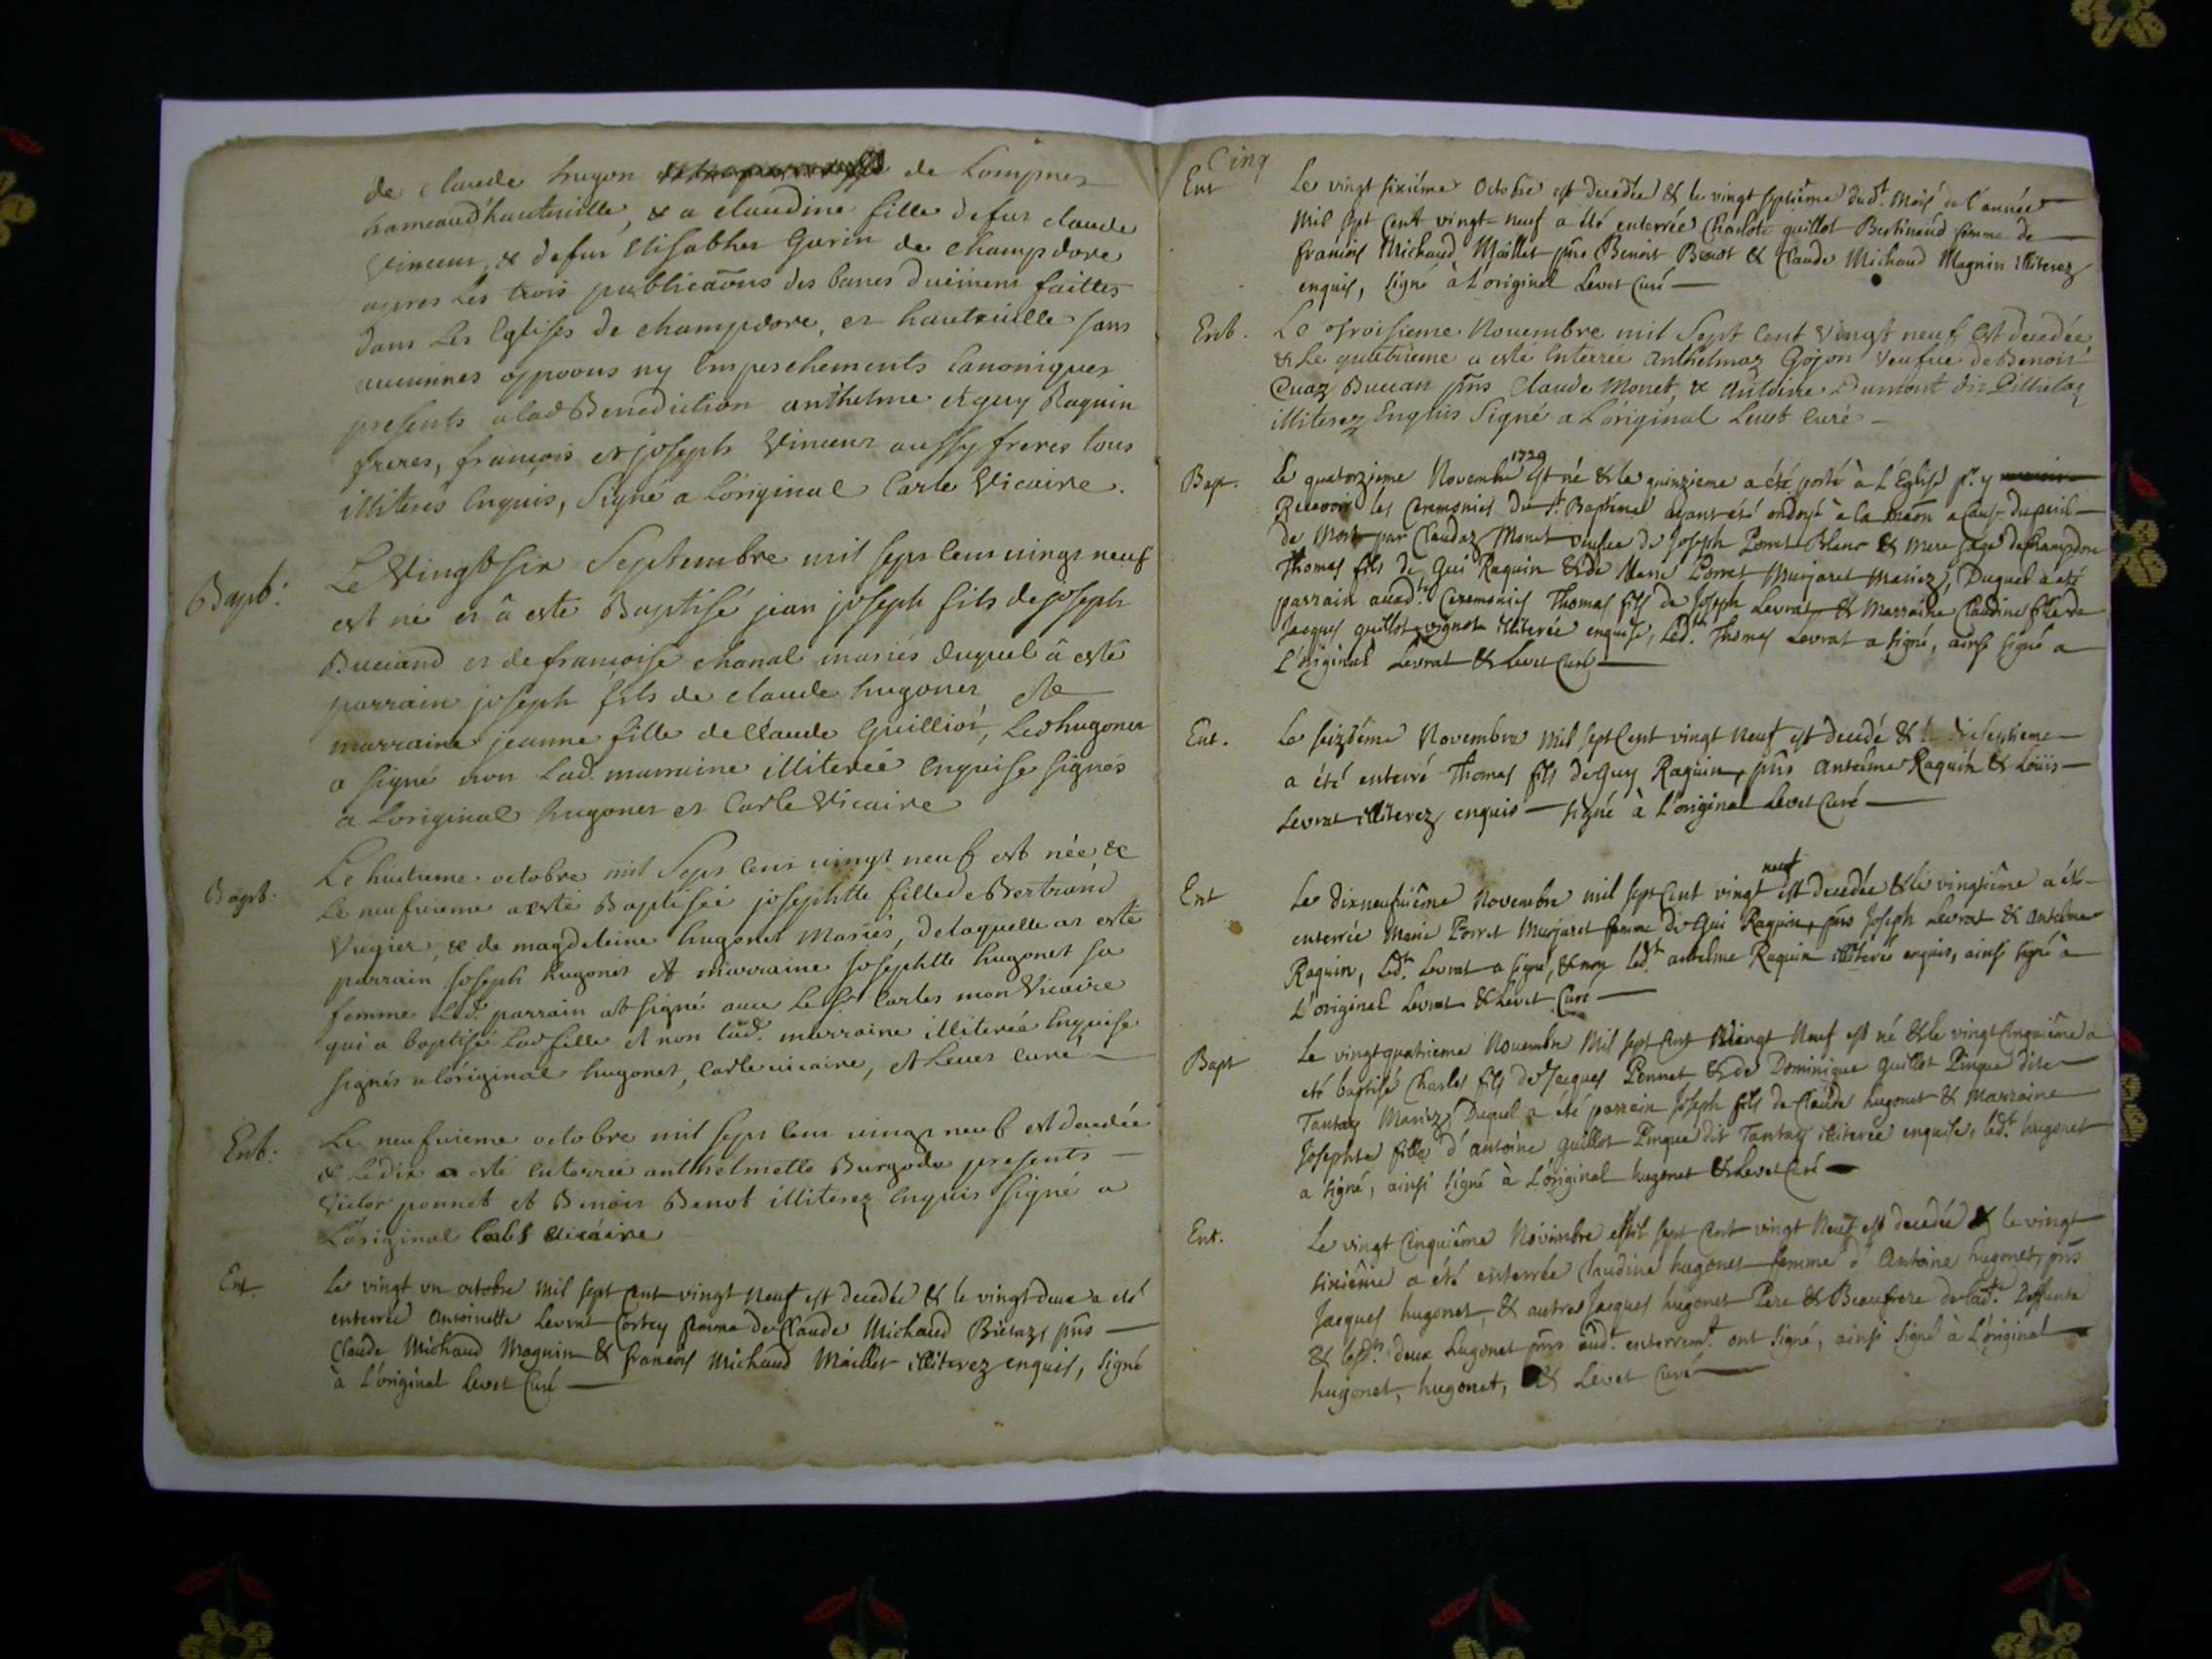 de claude hugon de Lompnes
hameaud'hauteuille, & a claudine fille defut claude
Vincent, & defut Elisabhet Gurin de champdore
apres Les trois publicãons des bancs duëment faittes
dans Les Eglises de champdore, et hauteuille sans
aucunnes oppoõns ny Empeschements Canoniques
presents a lad Benediction anthelme et guy Raquin
freres, françois et joseph Vincent aussy freres tous
illiterés Enquis, Signé a L'original Carle Vicaire.
Bapt:
Le Vingt six Septembre mil sept Cent vingt neuf
est né et â esté Baptisé jean joseph fils de joseph
Buciand et de françoise chanal mariés duquel â esté
parrain joseph fils de claude hugonet et
marraine jeanne fille de Claude Guilliot, Led hugonet
a signé non Lad. marraine illiterée Enquise signés
a L'original hugonet et Carle Vicaire
Bapt.
Le huitieme octobre mil Sept Cent vingt neuf est née &
Le neufuieme a esté Baptisée josephtte fille de Bertrand
Vugier, & de magdeleine hugonet Mariés, delaquelle at esté
parrain Joseph hugonet et marraine Josephtte hugonet sa
femme Led. parrain at signé auec Le Sr. Carles mon Vicaire
qui a baptisé Lad fille et non lad. marraine illiterée Enquise
signés a L'original hugonet, Carle vicaire, et Leuet curé
Ent:
Le neufuieme octobre mil sept Cent vingt neuf est decedée
& Ledix a esté Enterrée anthelmette Burgode presents
Victor ponnet et Benoit Benot illiterez Enquis Signé a
L'original Carles vicaire
Ent
Le vingt un octobre mil sept cent vingt neuf est decedée & le vingt deux a eté
enterrée Antoinette Levrat Cortey femme de Claude Michaud Biéraz, pñs
Claude Michaud Magnin & françois Michaud Maillet illiterez enquis, signé
à L'original Levet Curé
Cinq
Ent
Le vingt sixiéme Octobre est decedée & le vingt septiême dudt. Mois de l'année
Mil sept Cent vingt-neuf a été enterrée Charlote guillot Bertinaud femme de
francois Michaud Maillet pñs Benoit Benot & Claude Michaud Magnin illiterez
enquis, signé à L'original Levet Curé
Ent.
Le Troisieme Novembre mil Sept Cent Vingt neuf Est decedée
& Le quatrieme a esté Enterrée Anthelmaz Gojon Veufue de Benoit
Cuaz Buccan pñs Claude Monet, & Antoine Dumont dit Pillielaz
illiterez Enquis Signé a L'original Leuet Curé
Bapt.
Le quatorzieme Novembre 1729 est né & le quinzieme a été porté à L'Eglise pr. y
Recevoir les Ceremonies du St. Baptême ayant été ondoyé à la maõn a Cause du peril
de Mort par Claudaz Monet veufue de Joseph Porret-Blanc & mere sage de Champdore
Thomas fils de Gui Raquin & de Marie Porret Murjaret Mariez, Duquel a été
parrain auxdtes Ceremonies Thomas fils de Joseph Levrat & Marraine Claudine fille de
Jacques guillot-vignot illiterée enquise, Ledt. Thomas Levrat a signé, ainsi signé a
L'original Levrat & Levet Curé
Ent.
Le seiziême Novembre Mil sept Cent vingt neuf est decedé & le dixseptieme
a été enterré Thomas fils de Guy Raquin, pñs Antelme Raquin & Loüis
Levrat illiterez enquis signé à L'original Levet Curé
Ent
Le dixneufuiême Novembre mil sept Cent vingt neuf est decedée & le vingtiême a été
enterrée Marie Porret Murjaret femme de Gui Raquin, pñs Joseph Levrat & Antelme
Raquin, Ledt. Levrat a signé, & non ledt. antelme Raquin illiteré enquis, ainsi signé à
L'original Levrat & Levet Curé
Bapt
Le vingtquatrieme Novembre Mil sept Cent Vingt Neuf est né & le vingtCinquiême a
eté baptisé Charles fils de Jacques Ponnet & de Dominique guillot Pinque dite
Tantay Mariez, Duquel a été parrain Joseph fils de Claude hugonet & Marraine
Josephte fille d'antoine guillot Pinque dit Tantay illiterée enquise, ledt. hugonet
a signé, ainsi signé à L'original hugonet & Levet Curé
Ent.
Le vingt Cinquiême Novembre Mil sept Cent vingt Neuf est decedée & le vingt
sixiême a été enterrée Claudine hugonet femme d'Antoine hugonet, pñs
Jacques hugonet, & autre Jacques hugonet Pere & Beaufrere de ladte. Deffunte
& lesdts. deux hugonet pñs audt. enterremt. ont signé, ainsi signé à L'original
hugonet, hugonet, & Levet Curé